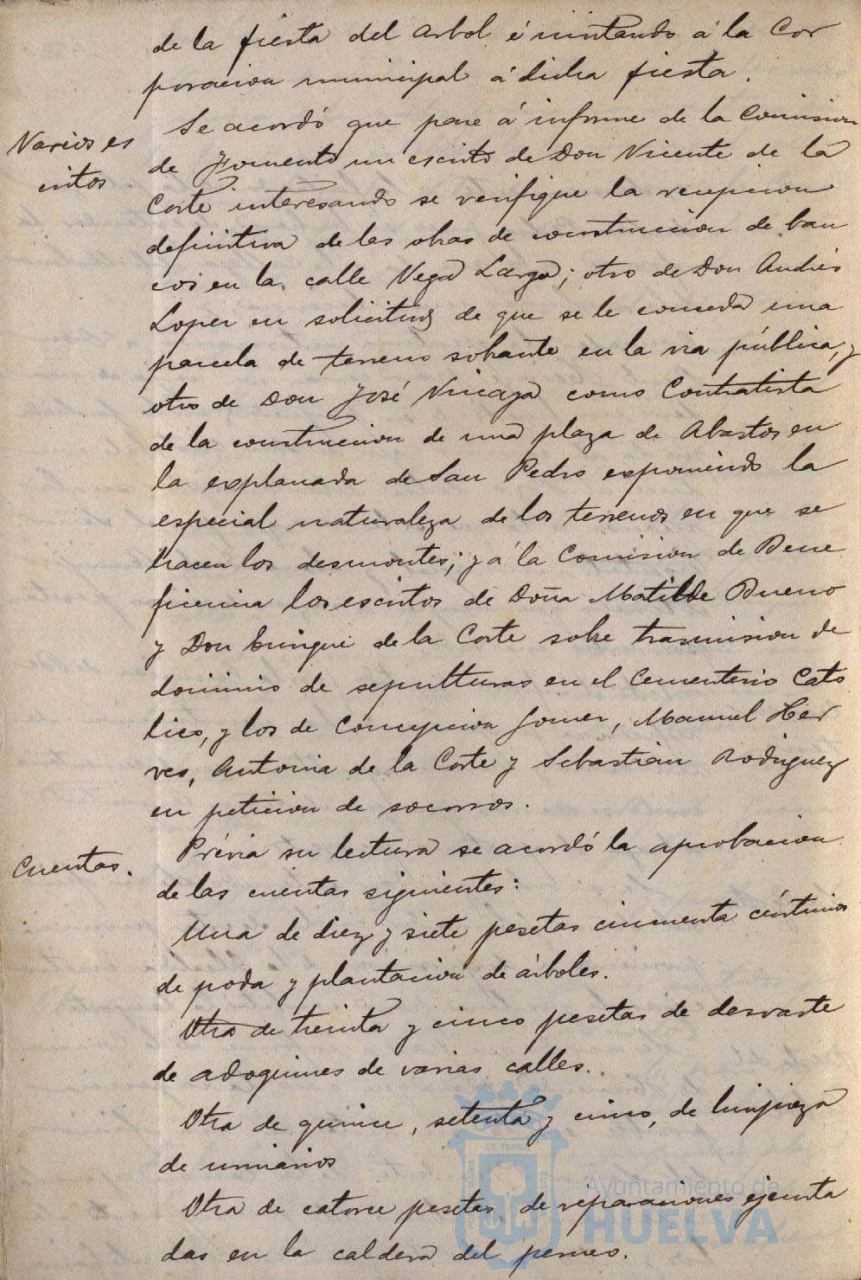 de la fiesta del arbol é invitando á la Cor
poracion municipal á dicha fiesta.
Varios es
critos
Se acordó que pase á informe de la Comision
de Fomento un escrito de Don Vicente de la
Corte interesando se verifique la recepcion
definitiva de las obras de construccion de ban
cos en la calle Vega Larga; otro de Don Andrés
Lopez en solicitud de que se le conceda una
parcela de terreno sobante en la via pública, y
otro de Don José Vizcaya como Contratista
de la construccion de una plaza de Abastos en
la explanada de San Pedro exponiendo la
especial naturaleza de los terrenos en que se
hacen los desmontes; y á la Comision de Bene
ficencia los escritos de Doña Matilde Bueno
y Don Enrique de la Corte sobre trasmision de
dominio de sepulturas en el Cementerio Cató
lico, y los de Concepcion Gomez, Manuel Her
ves, Antonia de la Corte y Sebastian Rodriguez
en peticion de socorros.
Cuentas.
Prévia su lectura se acordó la aprobacion
de las cuentas siguientes:
Una de diez y siete pesetas cincuenta céntimos
de poda y plantacion de árboles.
Otra de treinta y cinco pesetas de desvaste
de adoquines de varias calles.
Otra de quince, setenta y cinco, de limpieza
de urinarios
Otra de catorce pesetas de reparaciones ejecuta
das en la caldera del perneo.
Ayuntamiento de
HUELVA